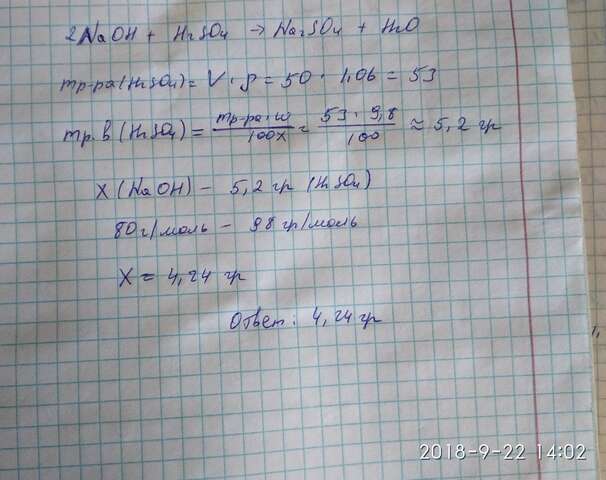 2NaOH + H2SO4 → Na2SO4 + H2O
mр-ра (H2SO4) = V · ρ = 50 · 1,06 = 53
mр.в (H2SO4) = mр-ра · ω / 100% = 53 · 9,8 / 100 ≈ 5,2 гр
X (NaOH) – 5,2 гр (H2SO4)
80 г/моль – 98 гр/моль
X = 4,24 гр
Ответ: 4,24 гр
2018-9-22 14:02